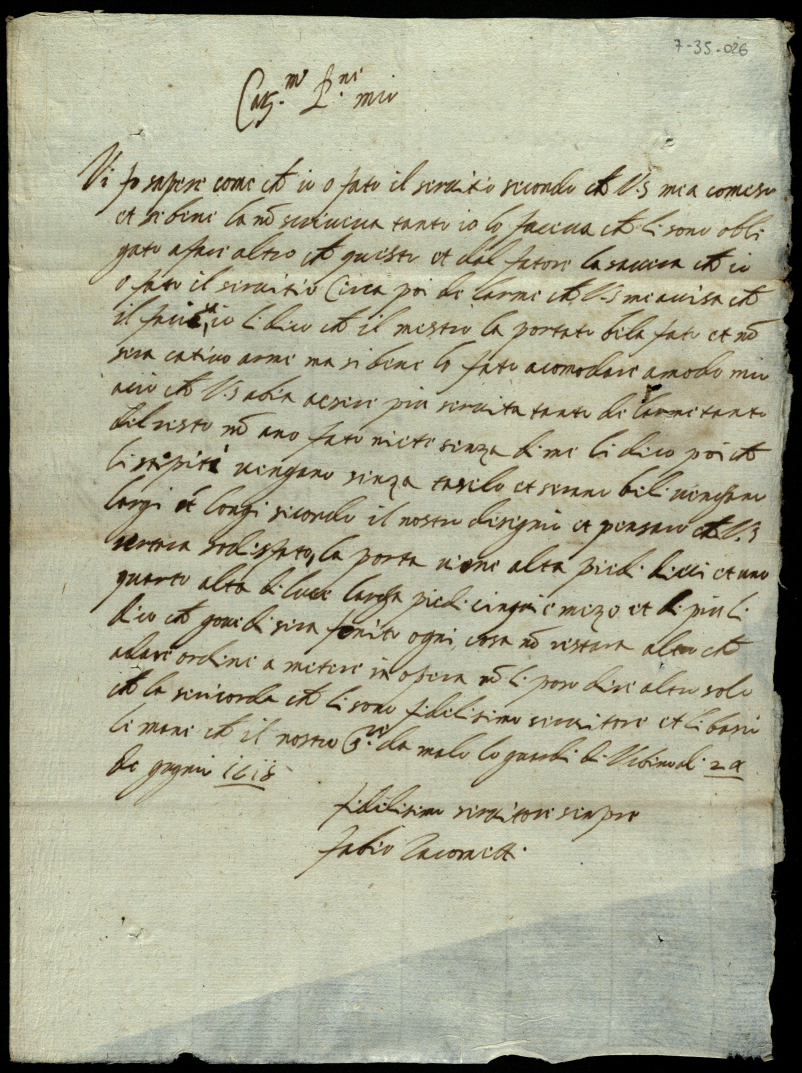 7-35-026
Car.mo P.ne mio
Vi fo sapere come ch io o fato il servitio secondo ch V.S mea comeso
et sebene la nō scriveva tanto io lo faceva ch li sono obli
gato a fare altro ch questo et dal fatore la saveva ch io
o fato il servitio Circa poi de larme ch V.S me avisa ch
il facia io li dico ch il mestro la portato bela fato et nō
sera cativo arme ma si bene lo fato acomodare a modo mio
acio ch V.S abia a esere piu servita tanto de larme tanto
del resto nō ano fato niete senza di me li dico poi ch
li stipiti vengano senza taselo et serano beli vengano
largi et longi secondo il nostro disegnio et pensaro ch V.S
restara sodisfato, la porta viene alta piedi dieci et uno
quarto alta di luce larga piedi cinque e mezo et di piu li
dico ch govedi sera fenito ogni cosa nō restara altro ch
a dare ordine a metere in opera nō li poso dire altro solo
ch la sericorda ch li sono fidelisimo servitore et li bascio
le mane ch il nostro S.re da malo lo guardi di Urbino li 2a
de gugnio 1618
fidelisimo servitore senpre
fabio Iacometti